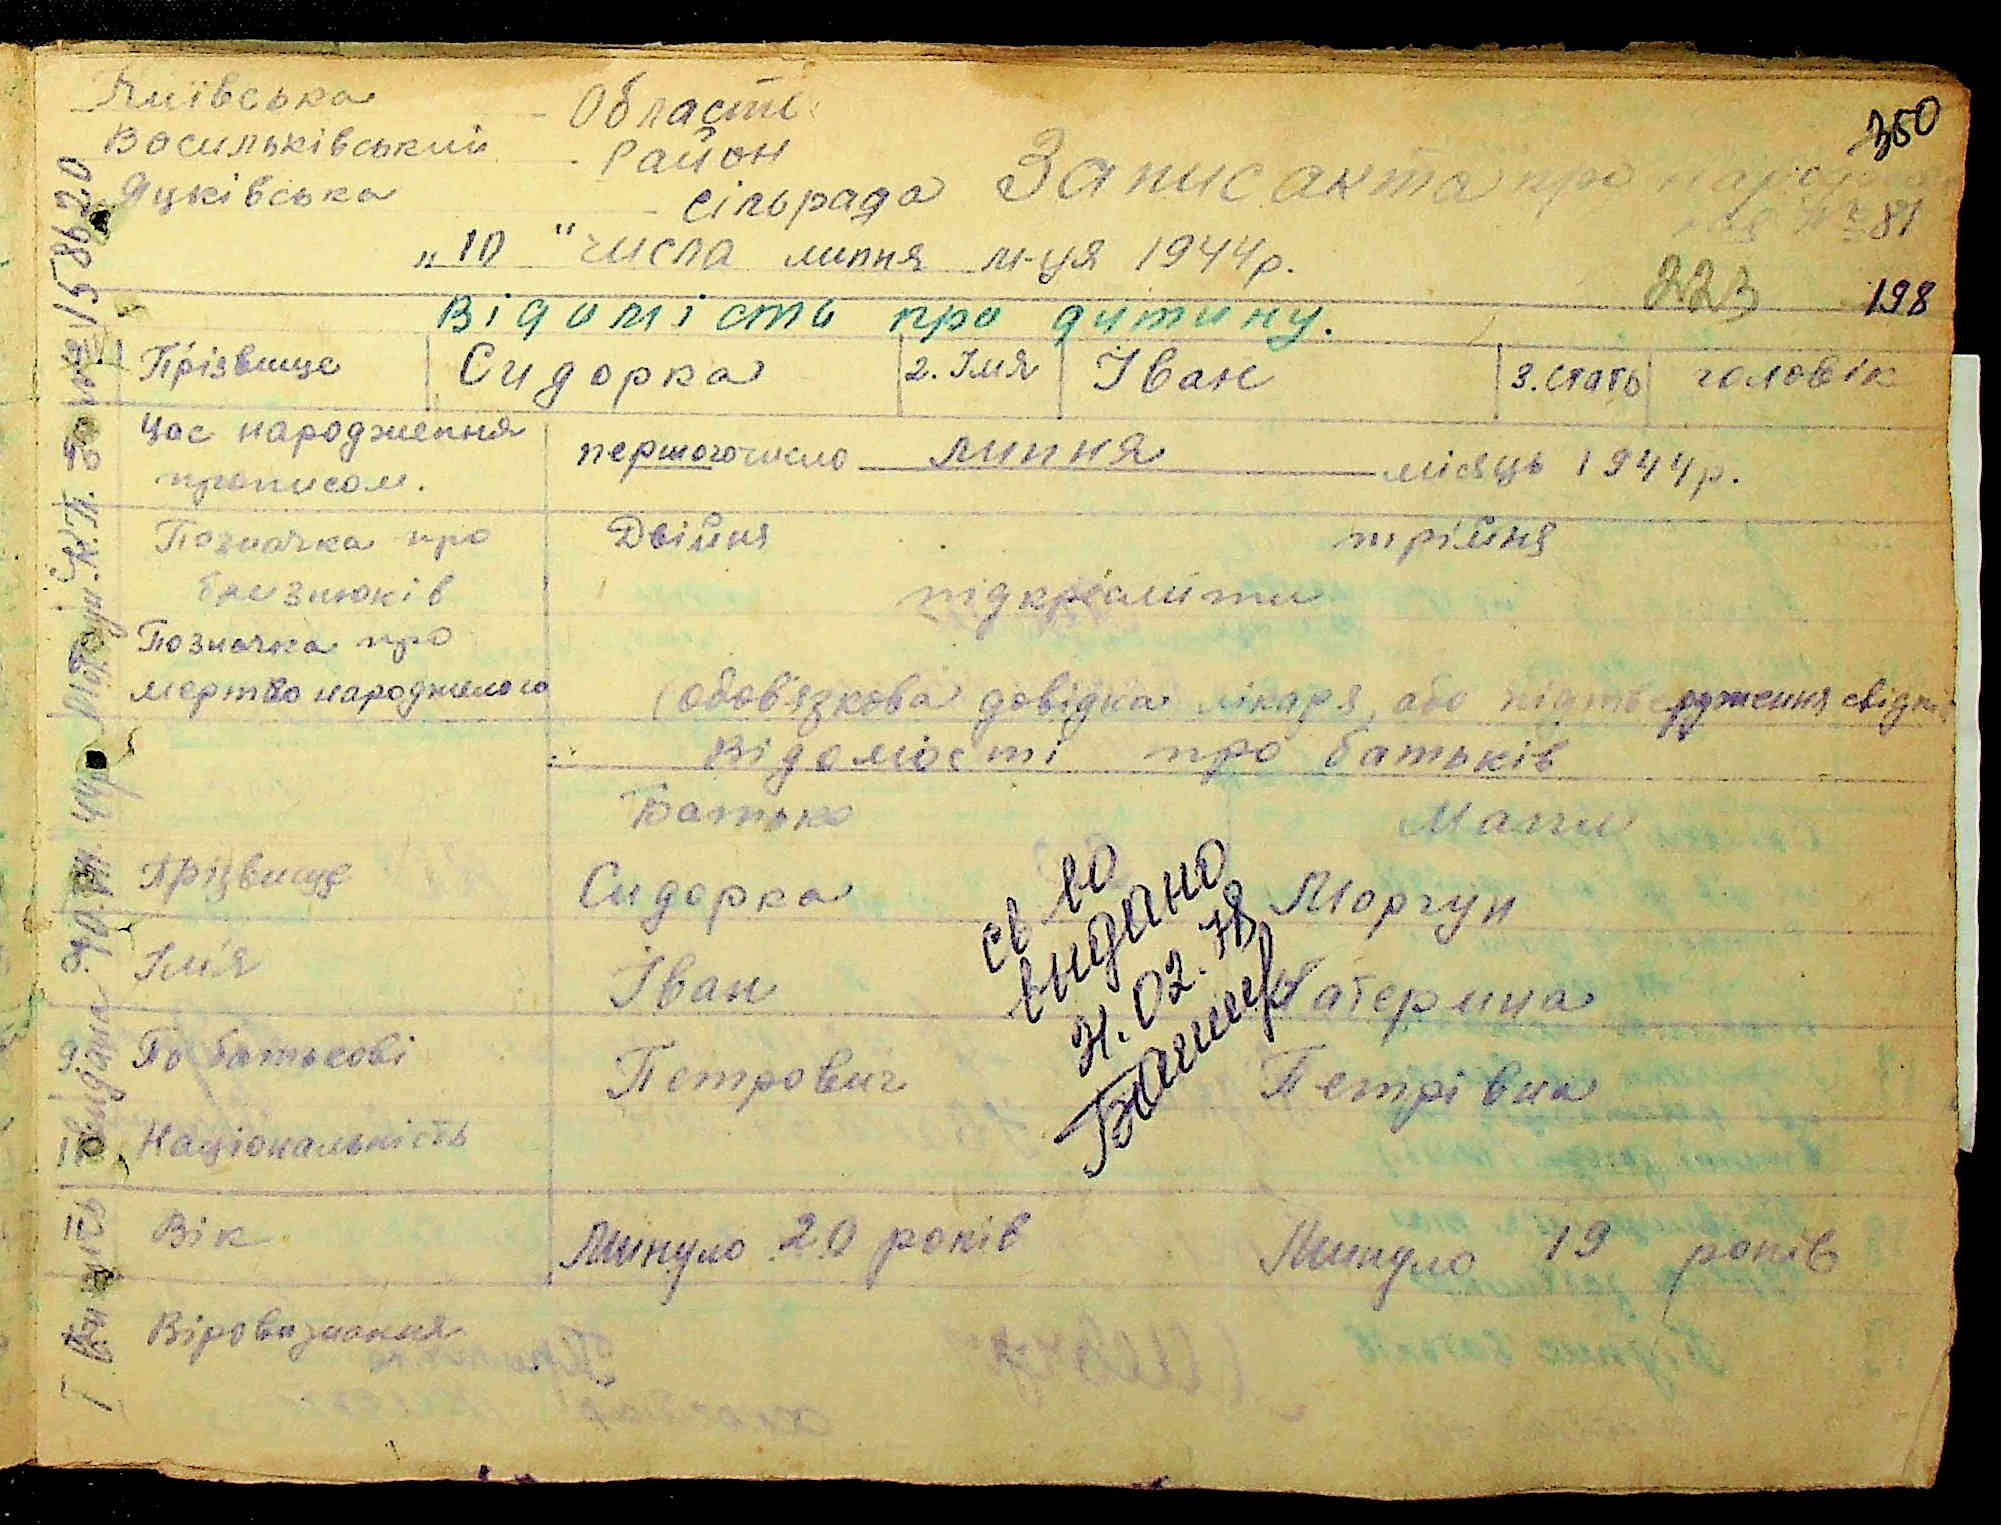 Київська - Область
Васильківський - Район
Яцківська - сільрада Запис акта про народжен
ня № 81
350
„10" числа липня м-ця 1944р.
223 198
Відомість про дитину.
Прізвище Сидорка 2. Імя Іван 3. Стать чоловік
Час народження
прописом.
першого число липня місяць 1944р.
Позначка про Двійня трійня
близнюків підкреслити
Позначка про
мертво народженого (обов'язкова довідка лікаря, або підтвердження свідків
Відомості про батьків
Батько Мати
Прізвище Сидорка Моргун
8. Імя Іван Катерина
9. По батькові Петрович Петрівна
10 Національність
11 Вік Минуло 20 років Минуло 19 років
Віровизнання
св во
видано
21.02.78